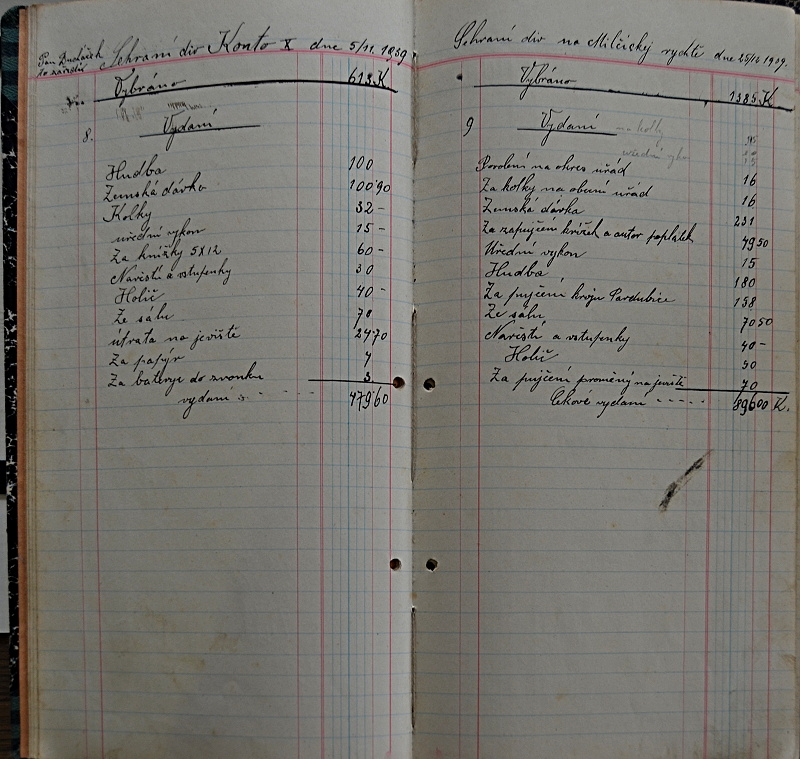 Pan Ducháček
to zařídil
Sehraní div Konto X dne 5/11. 1939
Vybráno 613 K
8. Vydaní
Hudba 100
Zemská dávka 100 90
Kolky 32 -
uřední vykon 15 -
Za knížky 5X12 60 -
Nařistí a vstupenky 30
Holič 40 -
Ze sálu 70
útrata na jeviště 24 70
Za papýr 4
Za baterye do zvonku 3
vydaní 479 60
Sehraní div na Milčický rychtě dne 25/12 1939.
Vybráno 1385 K
9 Vydaní
na kolky
uřední vykon
15
Povolení na okres uřád 16
Za kolky na obecní uřád 16
Zemská dávka 231
Za zapujčení knížek a autor poplatek 49 50
Uřední vykon 15
Hudba 180
Za pujčení kroju Pardubice 158
Ze sálu 70 50
Nařistí a vstupenky 40 -
Holič 50
Za pujčení proměný na jeviště 70
Celkové vydaní - - - - - 896 00 K.